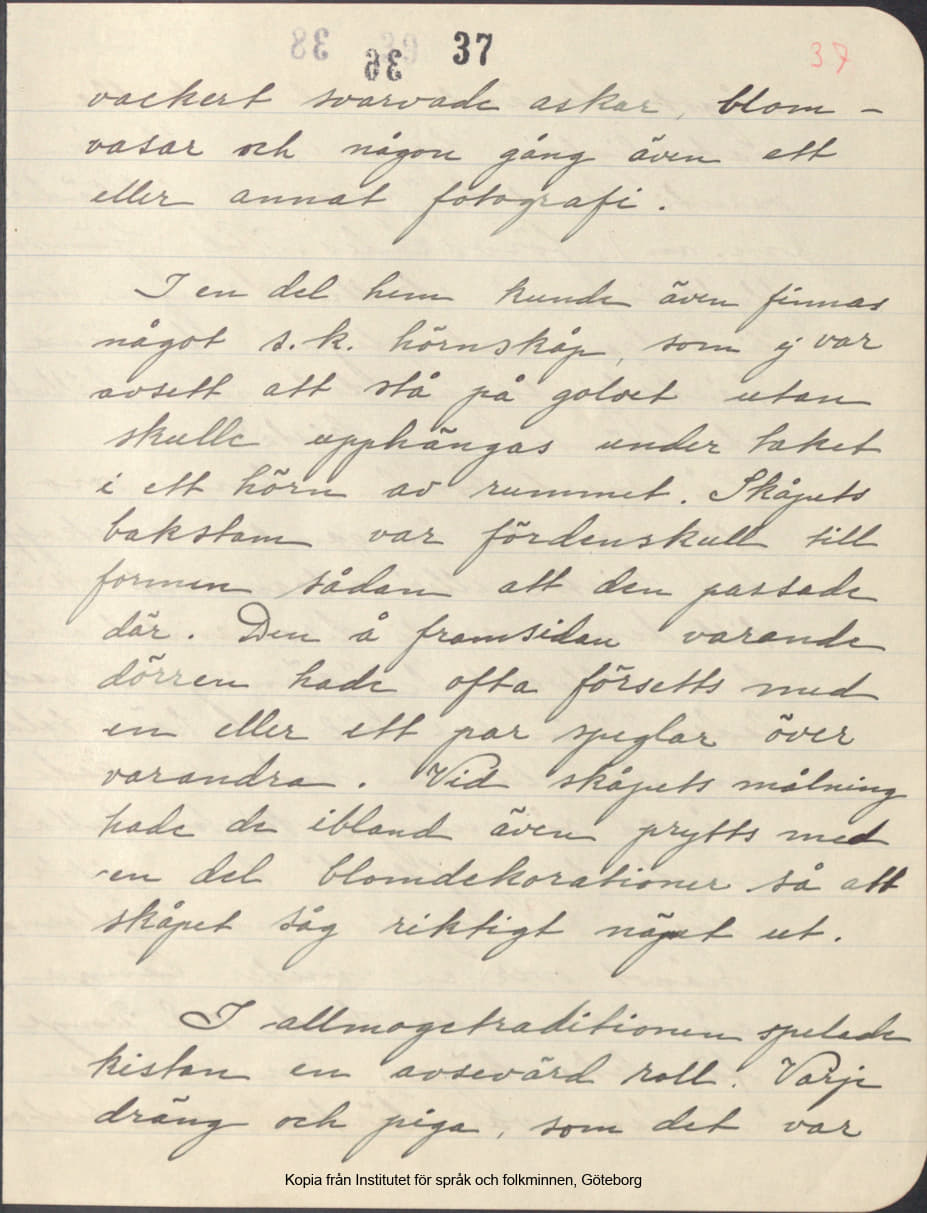 38 36 37 37
vackert svarvade askar, blom-
vasar och någon gång även ett
eller annat fotografi.
I en del hem kunde även finnas
något s.k. hörnskåp, som ej var
avsett att stå på golvet utan
skulle upphängas under taket
i ett hörn av rummet. Skåpets
bakstam var fördenskull till
formen sådan att den passade
där. Den å framsidan varande
dörren hade ofta försetts med
en eller ett par speglar över
varandra. Vid skåpets målning
hade de ibland även prytts med
en del blomdekorationer så att
skåpet såg riktigt näpet ut.
I allmogetraditionen spelade
kistan en avsevärd roll. Varje
dräng och piga, som det var
Kopia från Institutet för språk och folkminnen, Göteborg